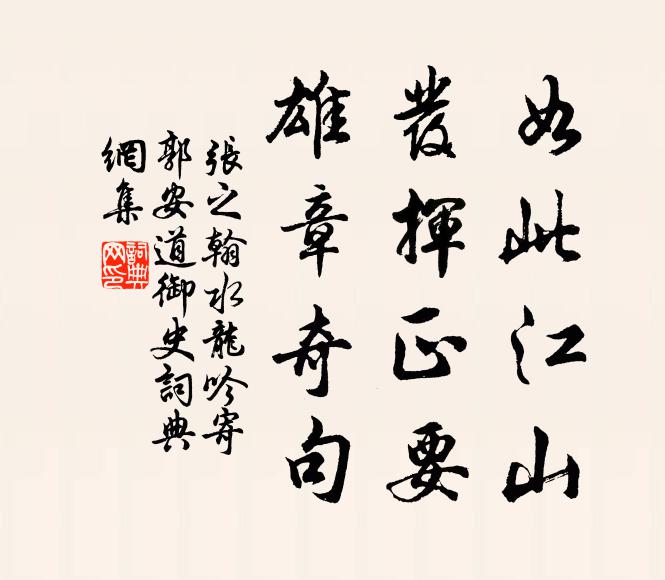 如此江山
發揮正要
雄章奇句
張之翰水龍吟寄
郭安道御史詞典
網集
詞典
網印